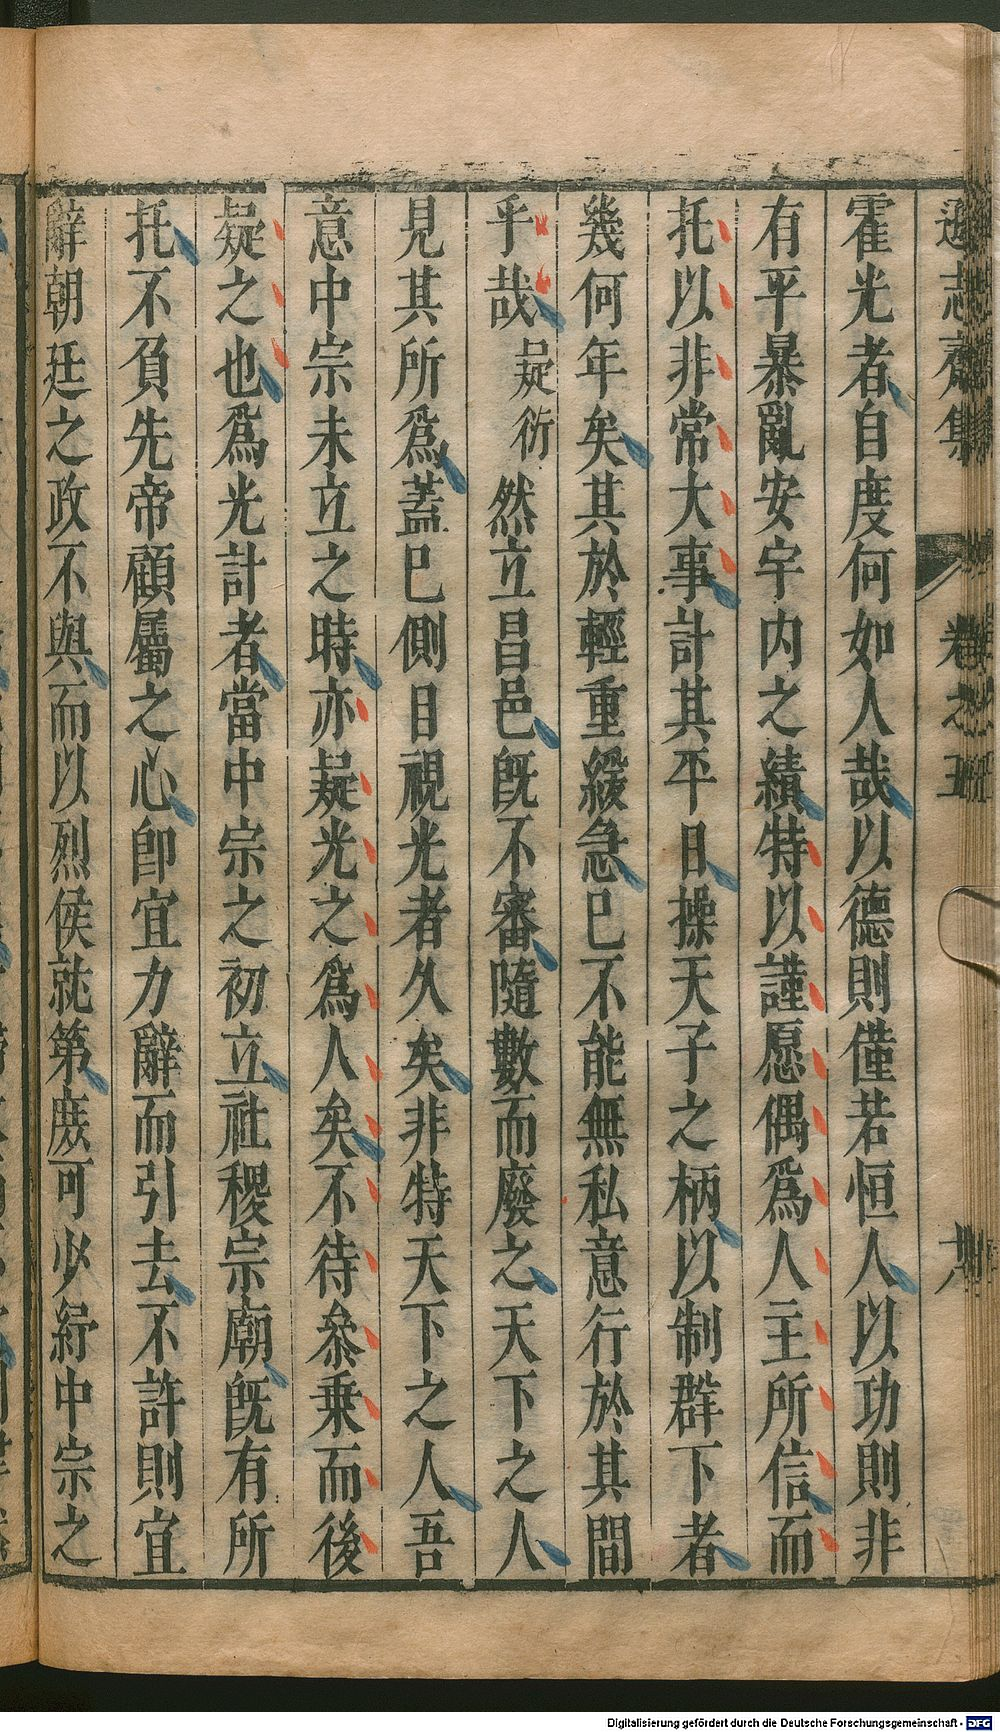 遜志齋集 卷之五
霍光者自度何如人哉以德則僅若恒人以功則非
有平暴亂安宇内之績特以謹愿偶爲人主所信而
托以非常大事計其平日操天子之柄以制群下者
幾何年矣其於輕重緩急已不能無私意行於其間
乎哉疑衍然立昌邑既不審隨數而廢之天下之人
見其所爲蓋已側目視光者久矣非特天下之人吾
意中宗未立之時亦疑光之爲人矣不待叅乗而後
疑之也爲光計者當中宗之初立社稷宗廟既有所
托不負先帝顧屬之心卽宜力辭而引去不許則宜
辭朝廷之政不與而以烈侯就第庻可少紓中宗之
Digitalisierung gefördert durch die Deutsche Forschungsgemeinschaft - DFG